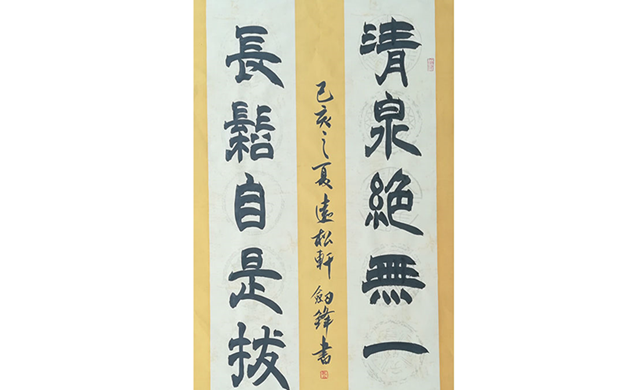 清泉絕無一
己亥之夏遠松軒劍鋒書
長鬆自是拔